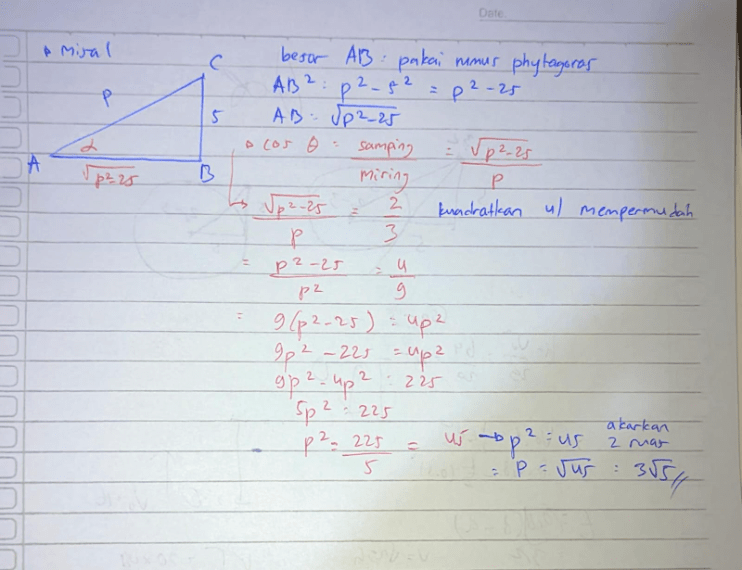 Date
• Misal
C
p
5
α
A
√p²-25
B
besar AB : pakai rumus phytagoras
AB² : p² - 5² = p² - 25
AB : √p²-25
• cos θ = samping / miring = √p²-25 / p
√p²-25 / p = 2 / 3 kuadratkan u/ mempermudah
= p²-25 / p² = 4 / 9
= 9(p²-25) = 4p²
9p² - 225 = 4p²
9p² - 4p² : 225
5p² : 225
p² = 225 / 5 = 45 → p² = 45 akarkan 2 ruas
= p = √45 : 3√5 //